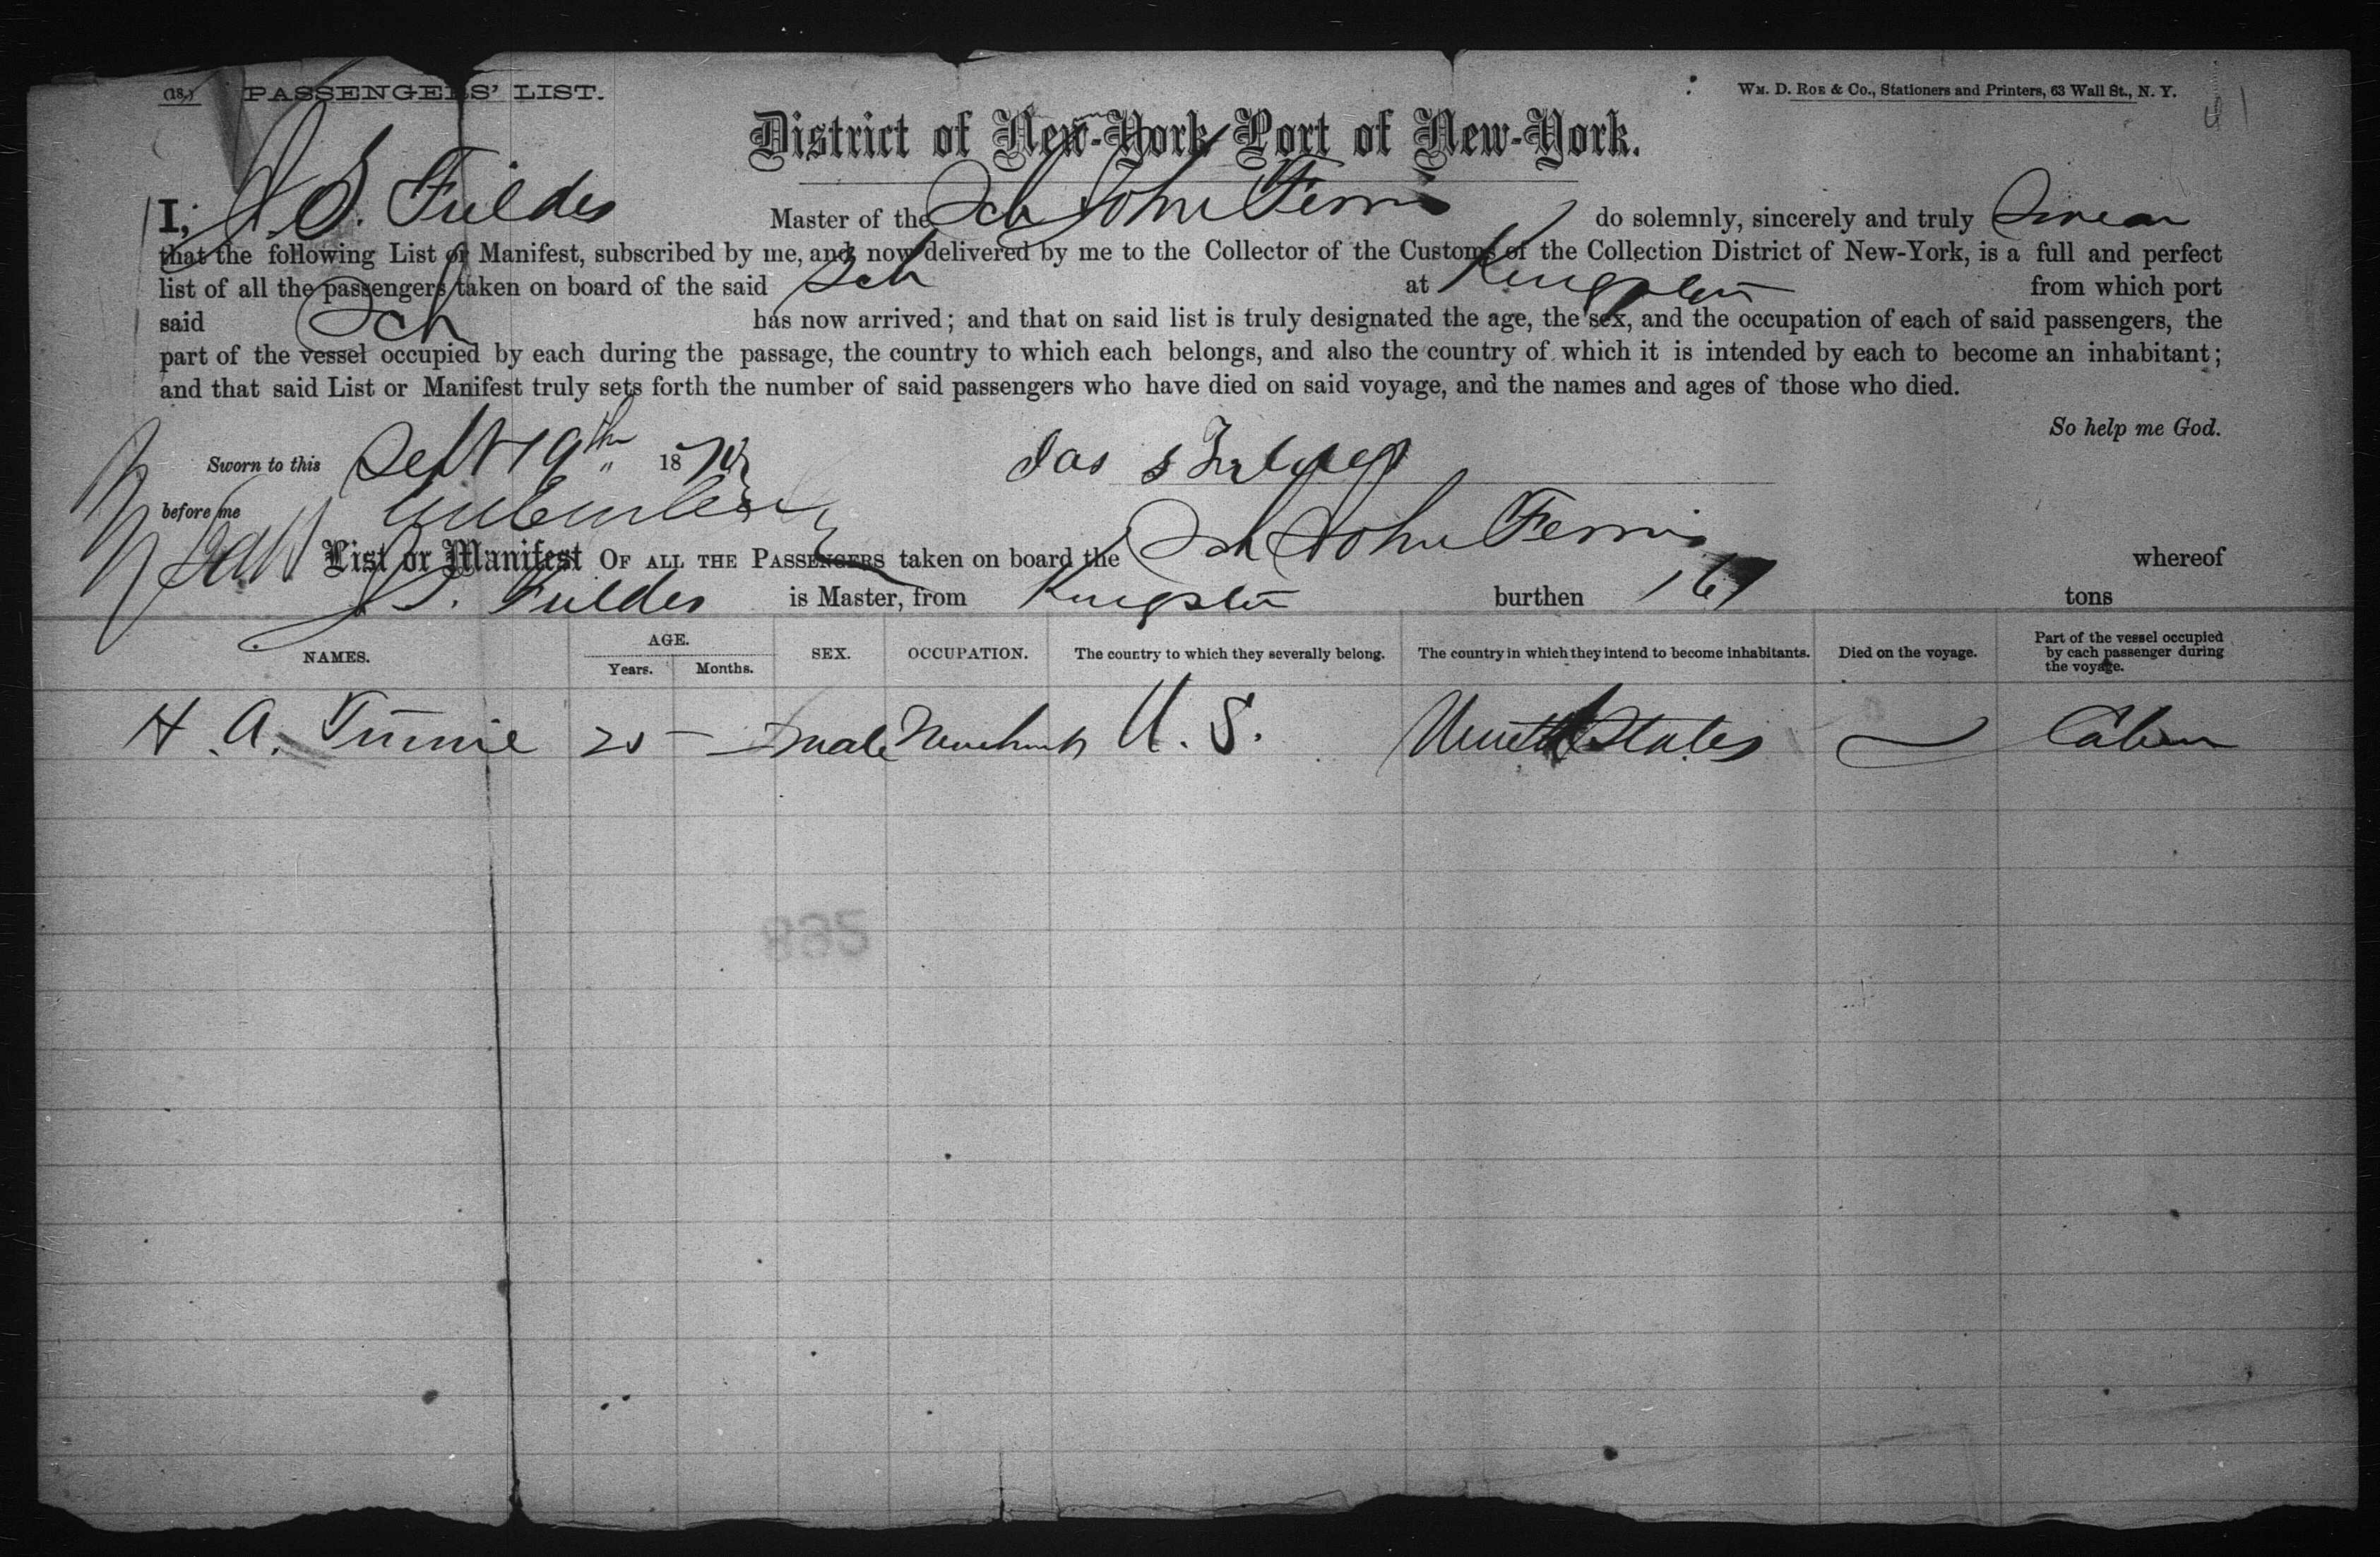 (18.) PASSENGERS' LIST. Wm. D. Roe & Co., Stationers and Printers, 63 Wall St., N. Y.
District of New-York Port of New-York.
I, J. S. Fieldes Master of the Sch John Ferris do solemnly, sincerely and truly Swear
that the following List or Manifest, subscribed by me, and now delivered by me to the Collector of the Customs of the Collection District of New-York, is a full and perfect
list of all the passengers taken on board of the said Sch at Kingston from which port
said Sch has now arrived; and that on said list is truly designated the age, the sex, and the occupation of each of said passengers, the
part of the vessel occupied by each during the passage, the country to which each belongs, and also the country of which it is intended by each to become an inhabitant;
and that said List or Manifest truly sets forth the number of said passengers who have died on said voyage, and the names and ages of those who died.
So help me God.
Sworn to this Sept 19th 18 Jas S
before me
List or Manifest Of all the Passengers taken on board the Sch John Ferris whereof
J. S. Fieldes is Master, from Kingston burthen 167 tons
NAMES. AGE. Years. Months. SEX. OCCUPATION. The country to which they severally belong. The country in which they intend to become inhabitants. Died on the voyage. Part of the vessel occupied by each passenger during the voyage.
H. A. 25 male U. S. United States Cabin